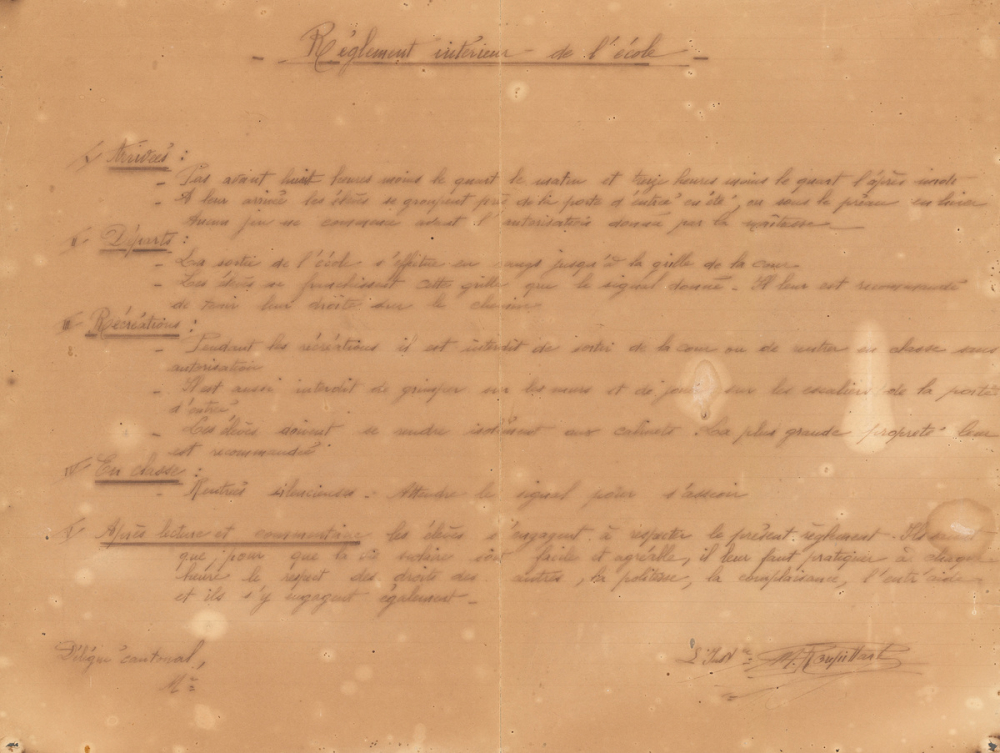 - Règlement intérieur de l'école -
Arrivées :
- Pas avant huit heures moins le quart le matin et treize heures moins le quart l'après midi
- A leur arrivée les élèves se groupent près de la porte d'entrée en été, ou sous le préau en hiver
Aucun jeu ne commence avant l'autorisation donnée par la maîtresse
Départs :
- La sortie de l'école s'effectue en rangs jusqu'à la grille de la cour
- Les élèves ne franchissent cette grille que le signal donné - Il leur est recommandé
de tenir leur droite sur le chemin
Récréations :
- Pendant les récréations il est interdit de sortir de la cour ou de rentrer en classe sans
autorisation
- Il est aussi interdit de grimper sur les murs et de jouer sur les escaliers de la porte
d'entrée
- Les élèves doivent se rendre isolément aux cabinets - La plus grande propreté leur
est recommandée
En classe :
- Rentrées silencieuses - Attendre le signal pour s'asseoir
Après lecture et commentaire les élèves s'engagent à respecter le présent règlement - Ils savent
que, pour que la vie scolaire soit facile et agréable, il leur faut pratiquer à chaque
heure le respect des droits des autres, la politesse, la complaisance, l'entr'aide
et ils s'y engagent également -
Délégué cantonal,
L'Inst